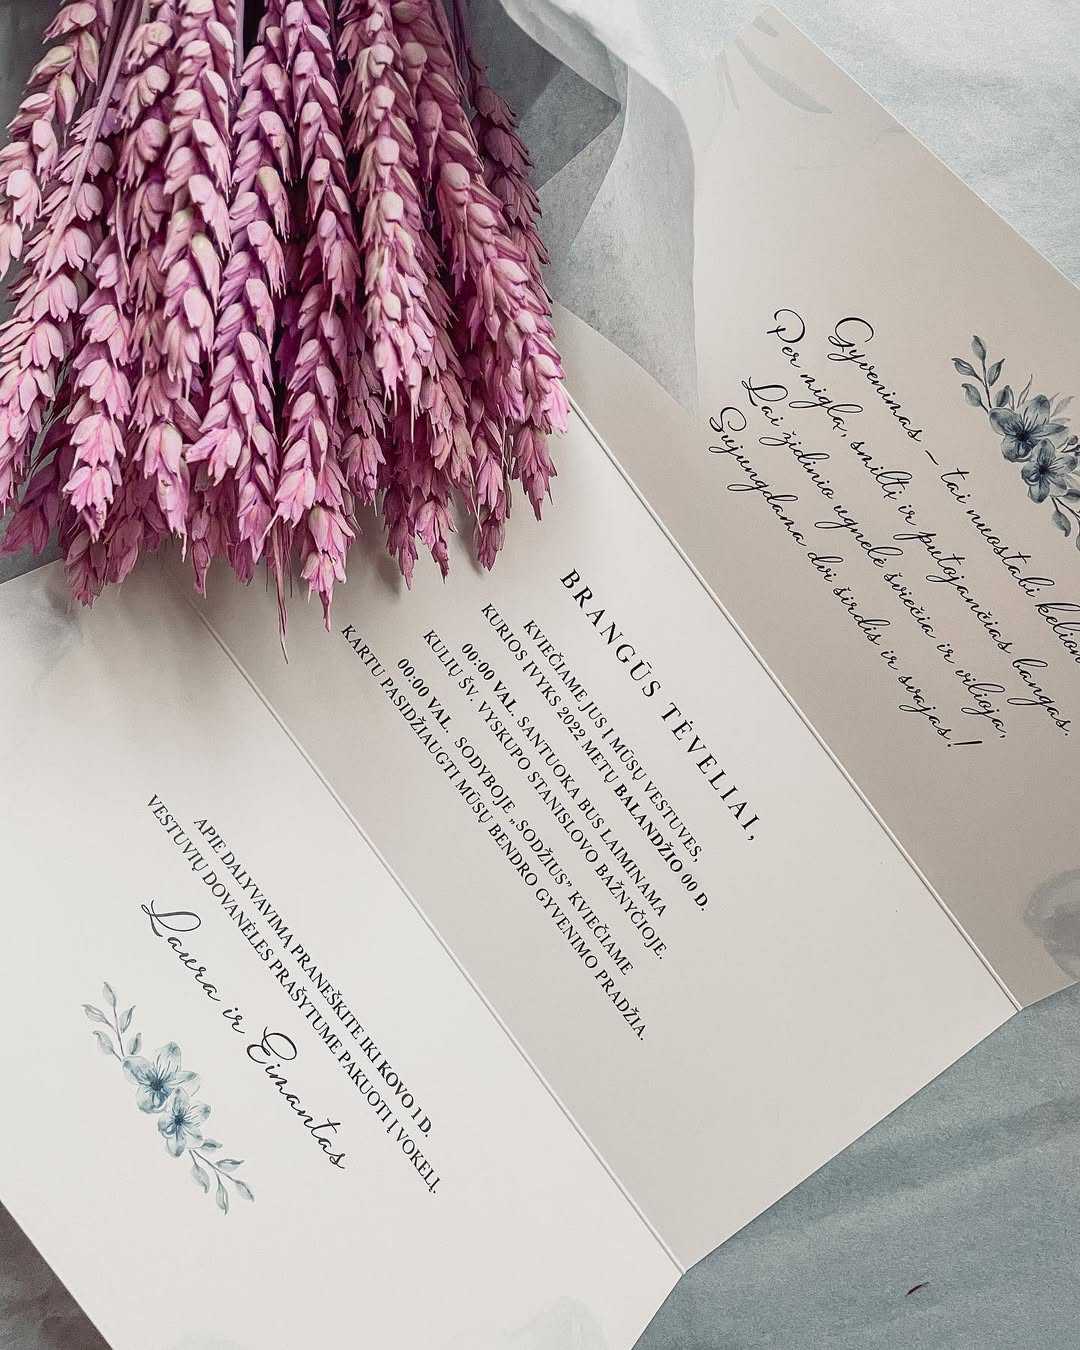 Gyvenimas – tai nuostabi
Per miglą, smiltį ir putojančias bangas.
Lai židinio ugnelė šviečia ir vilioja,
Sujungdama dvi širdis ir svajas!
BRANGŪS TĖVELIAI,
KVIEČIAME JUS Į MŪSŲ VESTUVES,
KURIOS ĮVYKS 2022 METŲ BALANDŽIO 00 D.
00:00 VAL. SANTUOKA BUS LAIMINAMA
KULIŲ ŠV. VYSKUPO STANISLOVO BAŽNYČIOJE.
00:00 VAL. SODYBOJE „SODŽIUS” KVIEČIAME
KARTU PASIDŽIAUGTI MŪSŲ BENDRO GYVENIMO PRADŽIA.
APIE DALYVAVIMĄ PRANEŠKITE IKI KOVO 1 D.
VESTUVIŲ DOVANĖLES PRAŠYTUME PAKUOTI Į VOKELĮ.
Laura ir Eimantas